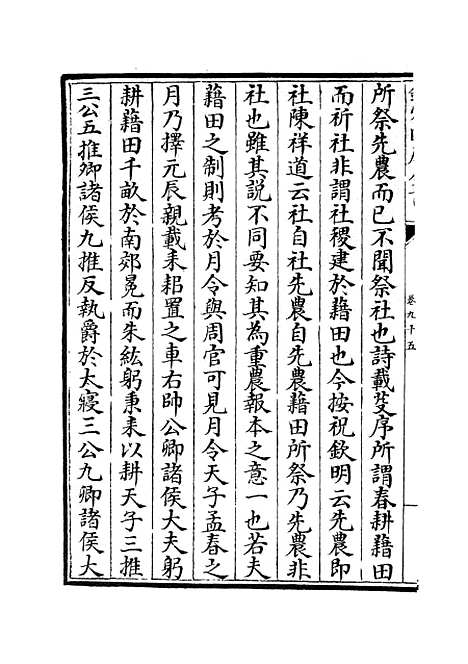 卷九十五
所祭先農而已不聞祭社也詩載芟序所謂春耕藉田
而祈社非謂社稷建於藉田也今按祝欽明云先農即
社陳祥道云社自社先農自先農藉田所祭乃先農非
社也雖其説不同要知其為重農報本之意一也若夫
藉田之制則考於月令與周官可見月令天子孟春之
月乃擇元辰親載耒耜置之車右帥公卿諸侯大夫躬
耕藉田千畝於南郊冕而朱紘躬秉耒以耕天子三推
三公五推卿諸侯九推反執爵於太寢三公九卿諸侯大